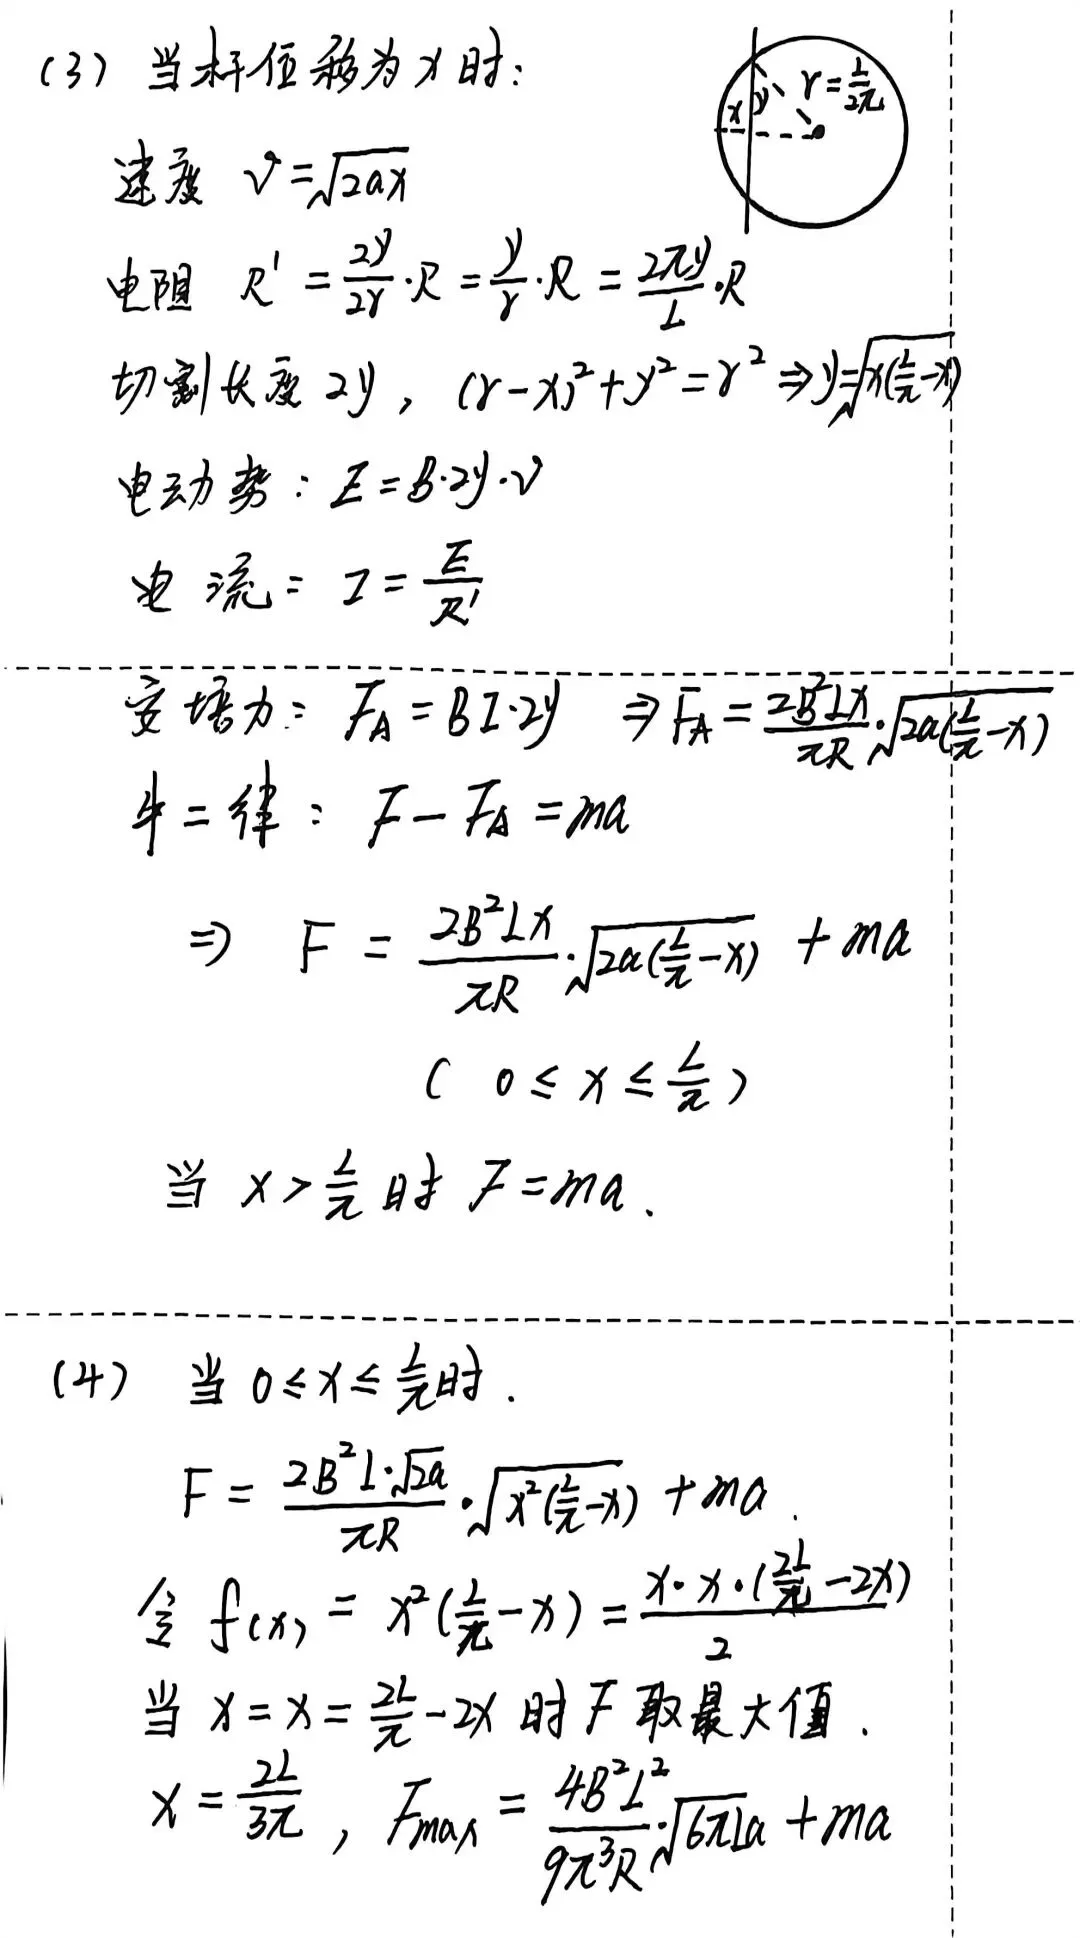 (3) 当杆位移为x时:
x y r=L/2π
速度 v=√(2ax)
电阻 R'=2y/2r·R=y/r·R=2πy/L·R
切割长度2y，(r-x)²+y²=r²⇒y=√(x(L/π-x))
电动势：E=B·2y·v
电流：I=E/R'
安培力：F_A=BI·2y ⇒F_A=2B²Lx/πR·√(2a(L/π-x))
牛二律：F-F_A=ma
⇒ F = 2B²Lx/πR·√(2a(L/π-x)) +ma
( 0≤x≤L/π )
当 x>L/π 时 F=ma.
(4) 当0≤x≤L/π时.
F=2B²L·√(2a)/πR·√(x²(L/π-x)) +ma.
令 f(x) = x²(L/π-x)=x·x·(2L/π-2x)/2
当 x=x=2L/π-2x 时F取最大值.
x=2L/3π，F_max=4B²L²/9π³R·√(6πLa)+ma